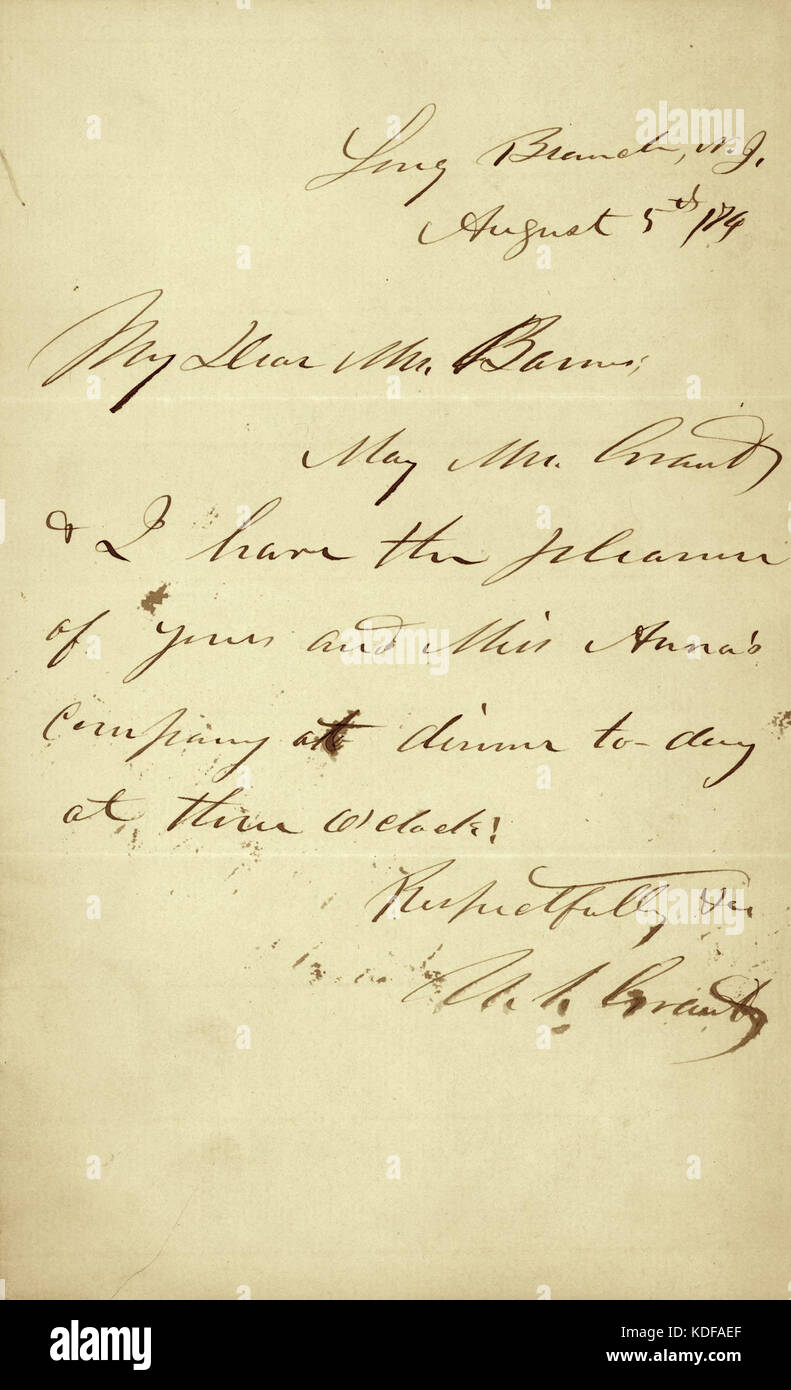 Long Branch, N.J.
August 5th /74
My Dear Mr. Barnes;
May Mrs. Grant
& I have the pleasure
of yours and Miss Anna's
company at dinner to-day
at three O'clock!
Respectfully &c
U.S. Grant
alamy
Image ID: KDFAEF
www.alamy.com